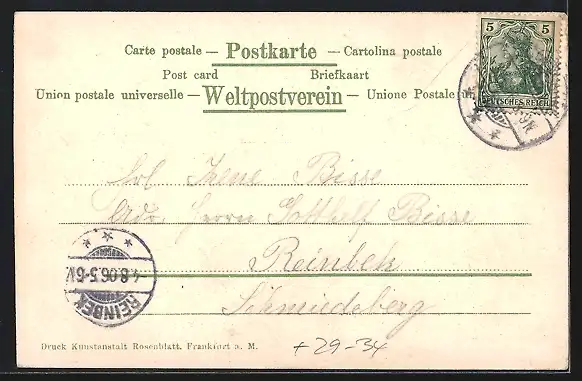 Carte postale — Postkarte — Cartolina postale
Post card Briefkaart
Union postale universelle — Weltpostverein — Unione Postale
5 5
DEUTSCHES REICH
Frl. Irene Bisse
Adr. Herrn Gotthelf Bisse
Reinbek
Schmiedeberg
REINBEK
4.8.06.5-6N.
Druck Kunstanstalt Rosenblatt. Frankfurt a. M.
+29-34